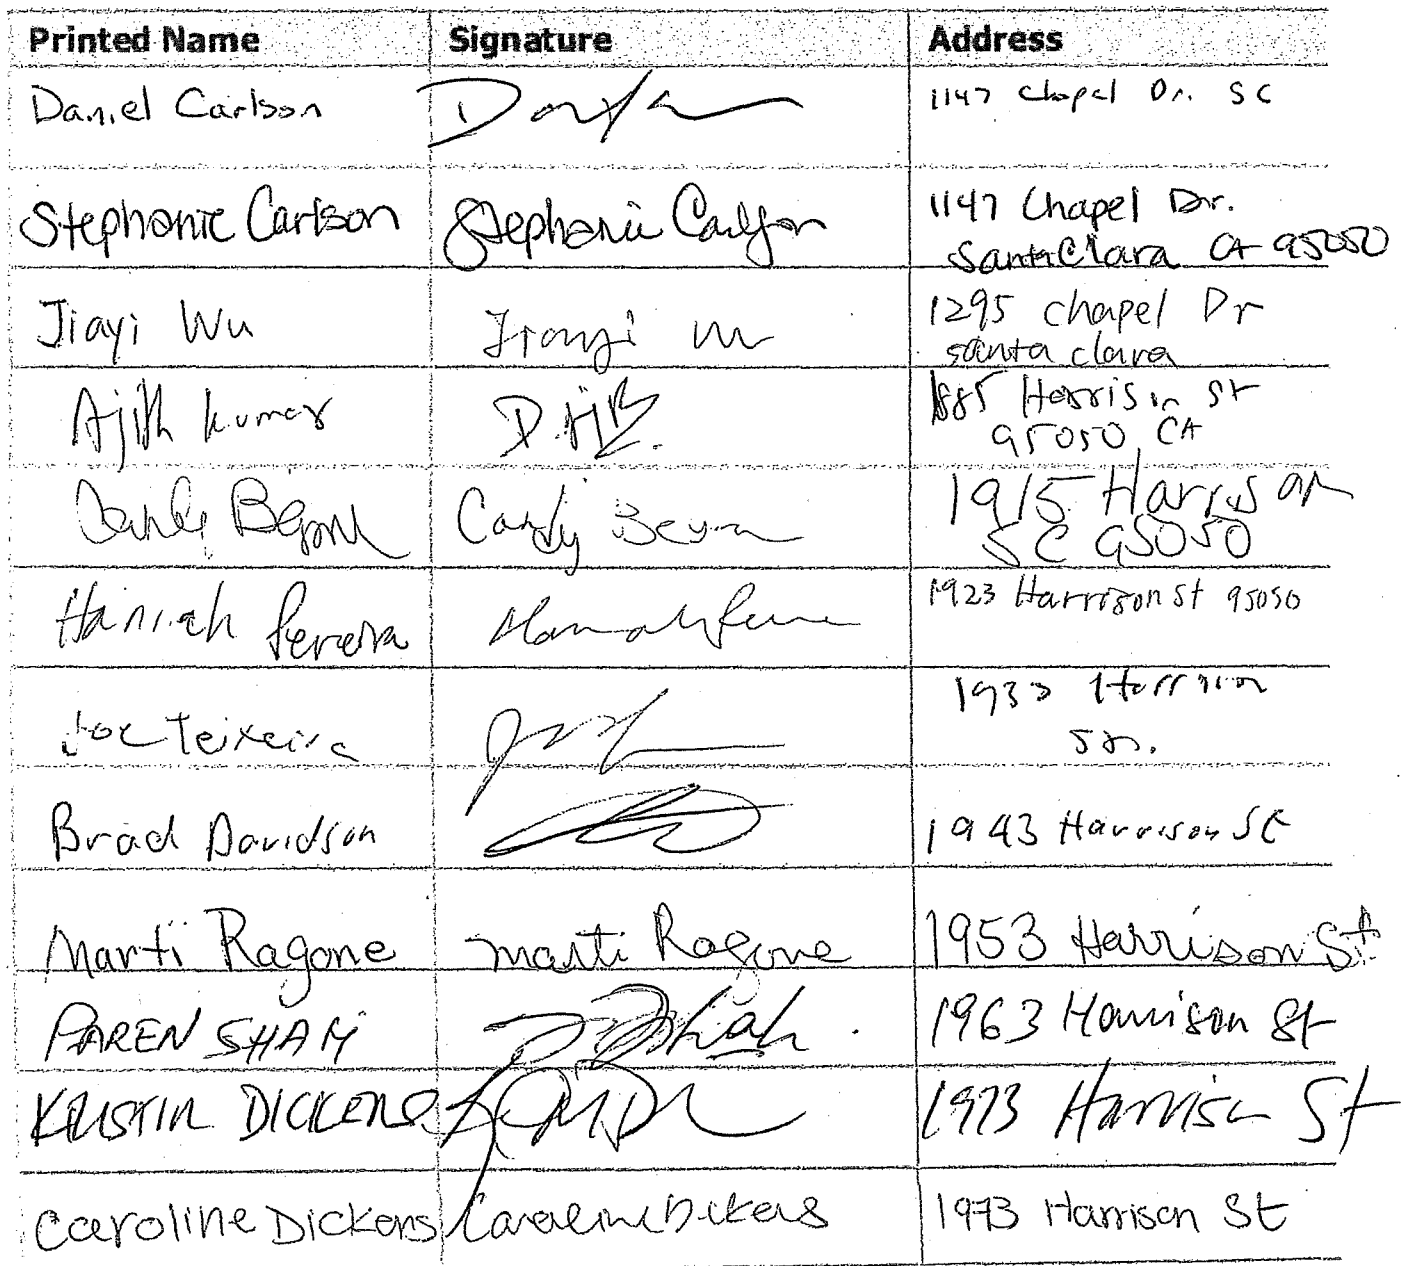 Printed Name Signature Address
Daniel Carlson 1147 Chapel Dr. SC
Stephanie Carlson Stephanie Carlson 1147 Chapel Dr.
Santa Clara CA 95050
Jiayi Wu Jiayi Wu 1295 Chapel Dr
santa clara
Ajith Kumar 1885 Harrison St
95050 CA
1915 Harrison
SC 95050
Hannah Pereira Hannah 1923 Harrison St 95050
Joe Teixeira 1933 Harrison
Brad Davidson 1943 Harrison St
Marti Ragone Marti Ragone 1953 Harrison St
PAREN SHAH Shah 1963 Harrison St
KRISTIN DICKENS 1973 Harrison St
Caroline Dickens Caroline Dickens 1973 Harrison St